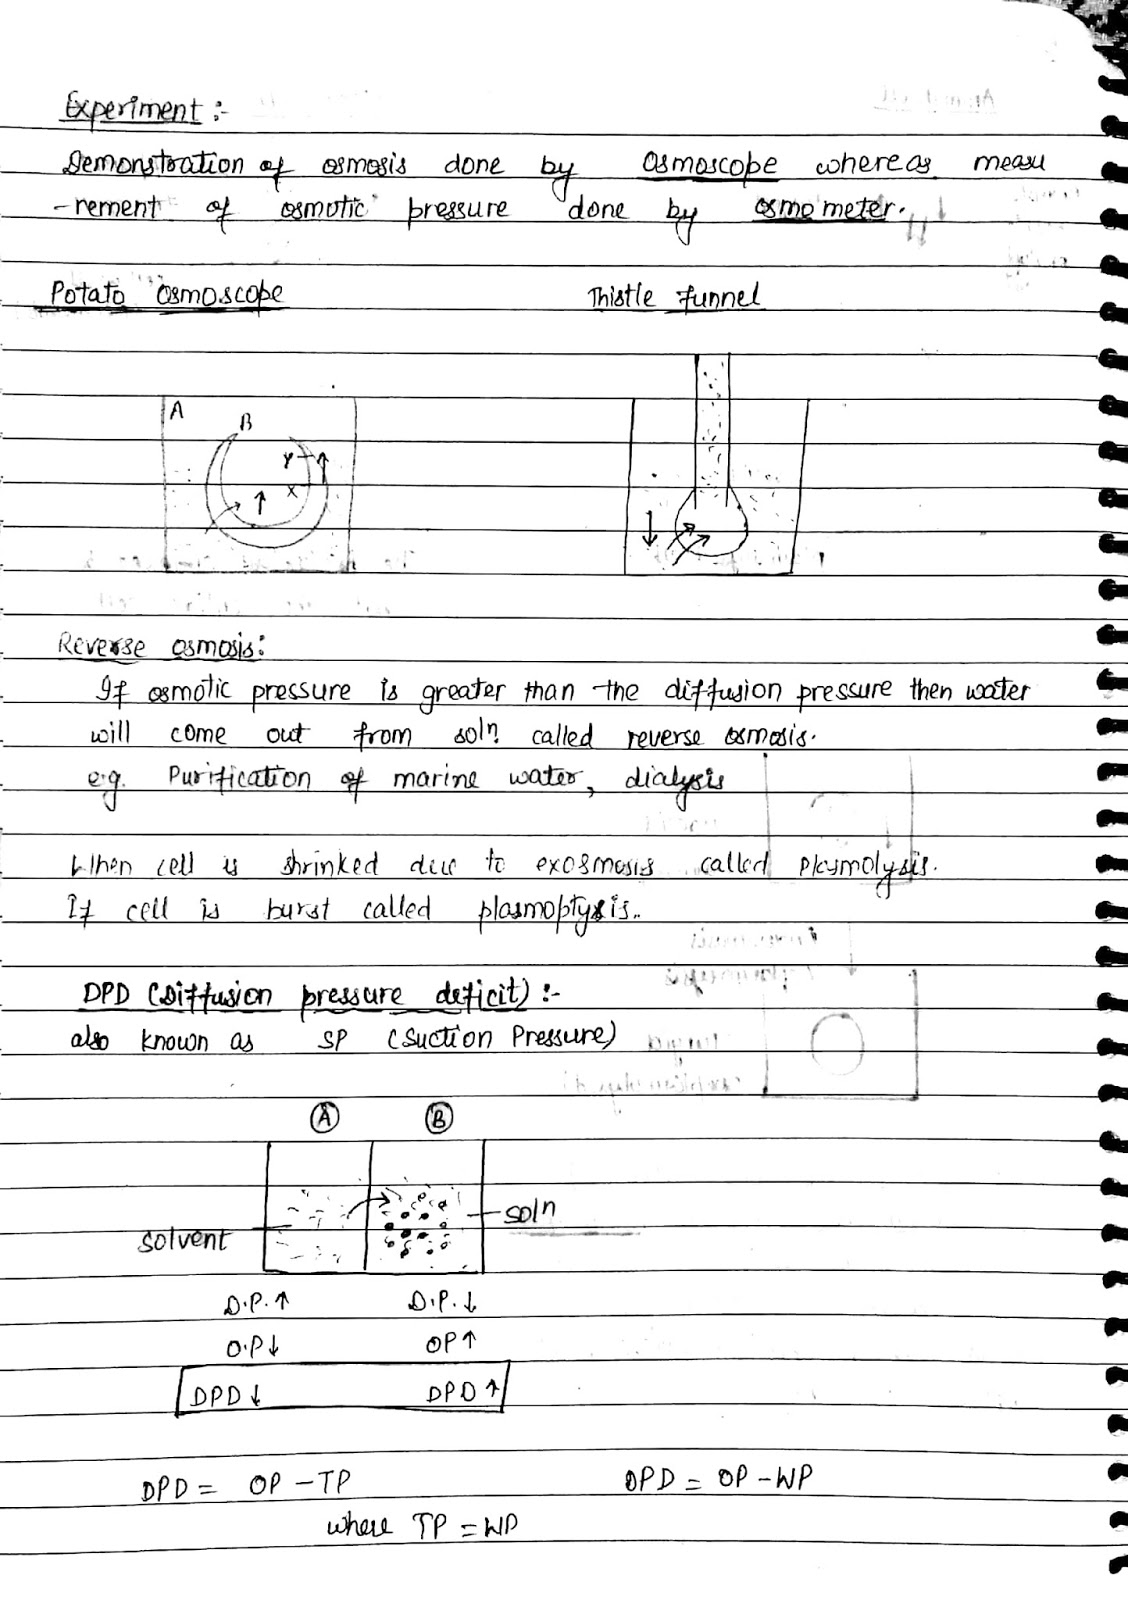 Experiment :-
Demonstration of osmosis done by Osmoscope whereas measu
-rement of osmotic pressure done by osmometer.
Potato Osmoscope
Thistle funnel
A
B
Y
X
Reverse osmosis:
If osmotic pressure is greater than the diffusion pressure then water
will come out from soln. called reverse osmosis.
e.g. Purification of marine water, dialysis
When cell is shrinked due to exosmosis called plasmolysis.
If cell is burst called plasmoptysis..
DPD (Diffusion pressure deficit) :-
also known as SP (Suction Pressure)
A B
solvent
soln
D.P.↑ D.P.↓
O.P↓ OP↑
DPD↓ DPD↑
DPD = OP - TP DPD = OP - WP
where TP = WP